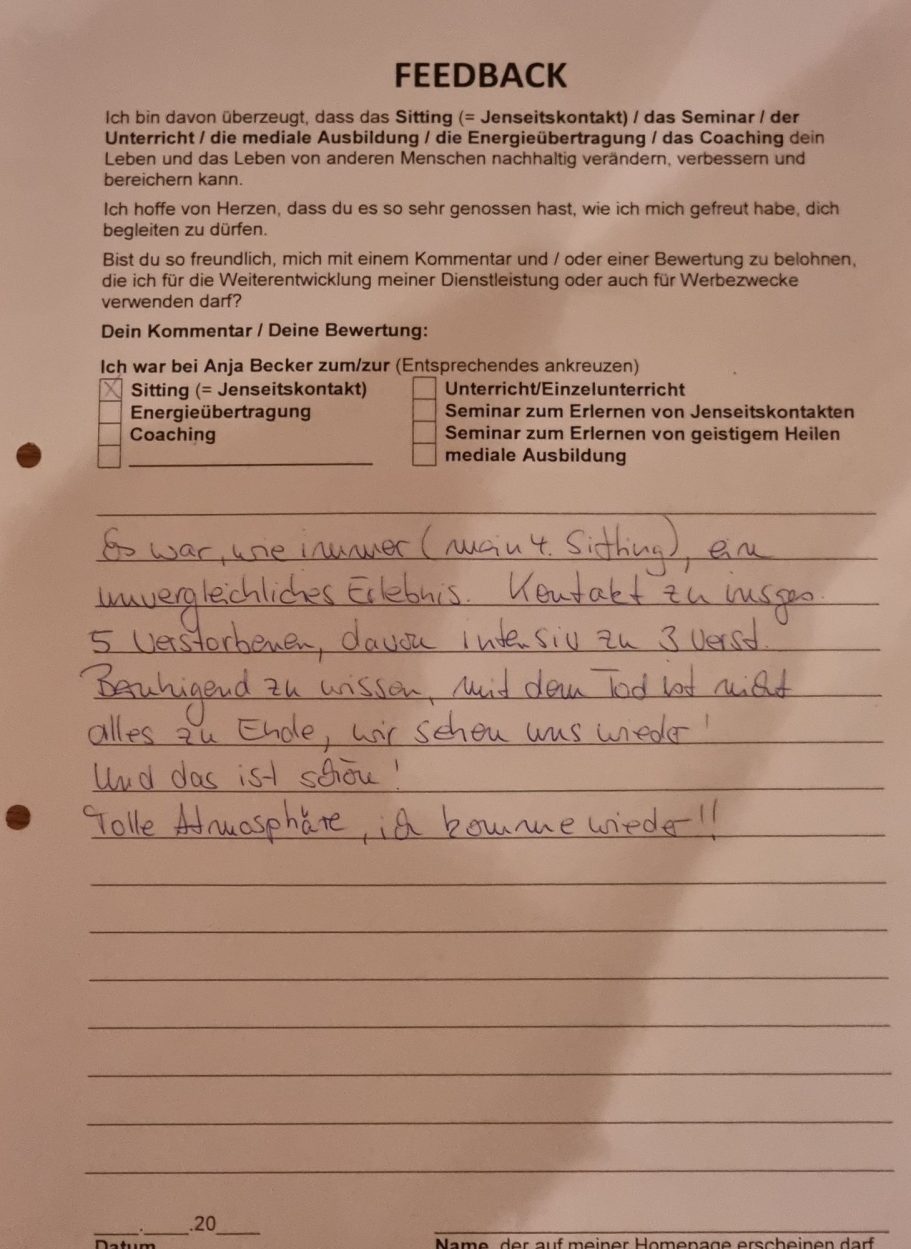 FEEDBACK
Ich bin davon überzeugt, dass das Sitting (= Jenseitskontakt) / das Seminar / der
Unterricht / die mediale Ausbildung / die Energieübertragung / das Coaching dein
Leben und das Leben von anderen Menschen nachhaltig verändern, verbessern und
bereichern kann.
Ich hoffe von Herzen, dass du es so sehr genossen hast, wie ich mich gefreut habe, dich
begleiten zu dürfen.
Bist du so freundlich, mich mit einem Kommentar und / oder einer Bewertung zu belohnen,
die ich für die Weiterentwicklung meiner Dienstleistung oder auch für Werbezwecke
verwenden darf?
Dein Kommentar / Deine Bewertung:
Ich war bei Anja Becker zum/zur (Entsprechendes ankreuzen)
Sitting (= Jenseitskontakt)
Energieübertragung
Coaching
Unterricht/Einzelunterricht
Seminar zum Erlernen von Jenseitskontakten
Seminar zum Erlernen von geistigem Heilen
mediale Ausbildung
Es war, wie immer (mein 4. Sitting), ein
unvergleichliches Erlebnis. Kontakt zu insges.
5 Verstorbenen, davon intensiv zu 3 Verst.
Beruhigend zu wissen, mit dem Tod ist nicht
alles zu Ende, wir sehen uns wieder!
Und das ist schön!
Tolle Atmosphäre, ich komme wieder!!
____.____.20____
Datum
Name, der auf meiner Homepage erscheinen darf